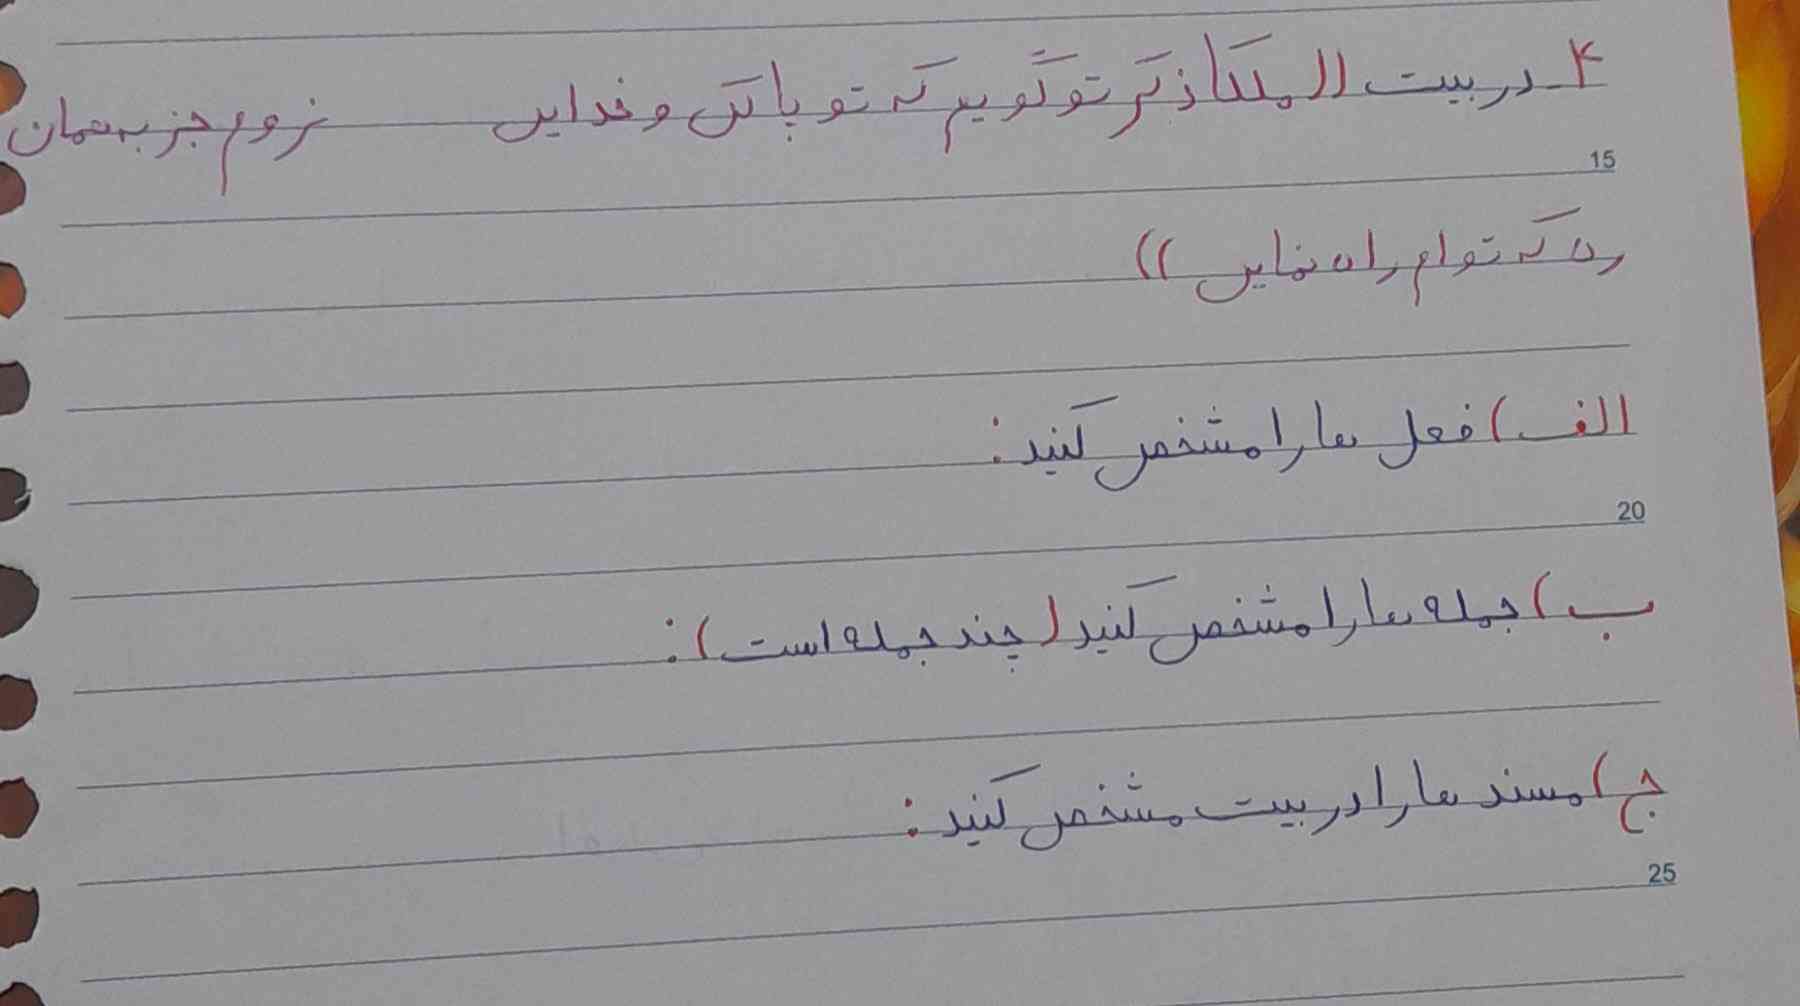 ۴_ در بیت ((ملکا ذکر تو گویم که تو پاکی و خدایی نروم جز به همان
15
ره که توام راه نمایی))
الف) فعل ها را مشخص کنید:
20
ب) جمله ها را مشخص کنید (چند جمله است):
ج) مسند ها را در بیت مشخص کنید:
25